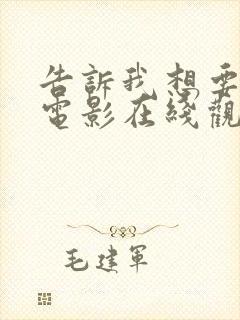 告訴我想要
電影在綫觀
毛建軍